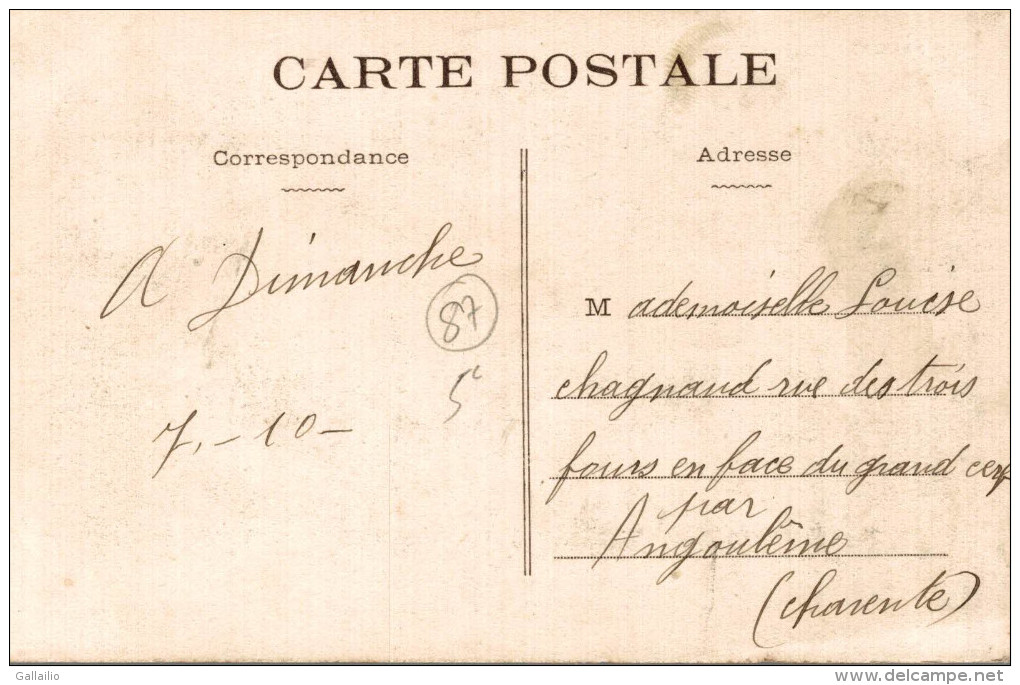 CARTE POSTALE
Correspondance
A Dimanche
87
7. – 10 –
Adresse
Mademoiselle Louise
chagnaud rue des trois
fours en face du grand cerf
par
Angoulême
(charente)
Gallailio
www.delcampe.net